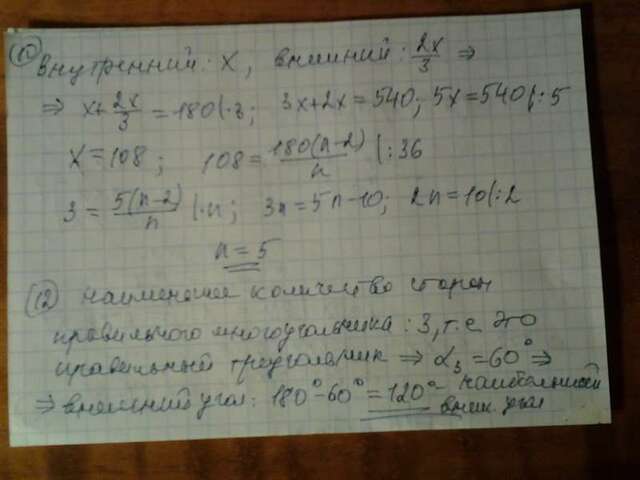 (10) внутренний: x, внешний: 2x/3 ⇒
⇒ x+2x/3=180(·3; 3x+2x=540; 5x=540(:5
x=108; 108=180(n-2)/n (:36
3=5(n-2)/n (·n; 3n=5n-10; 2n=10(:2
n=5
(12) наименьшее количество сторон
правильного многоугольника: 3, т.е это
правильный треугольник ⇒ α₃=60° ⇒
⇒ внешний угол: 180°-60°=120° - наибольший
внеш. угол